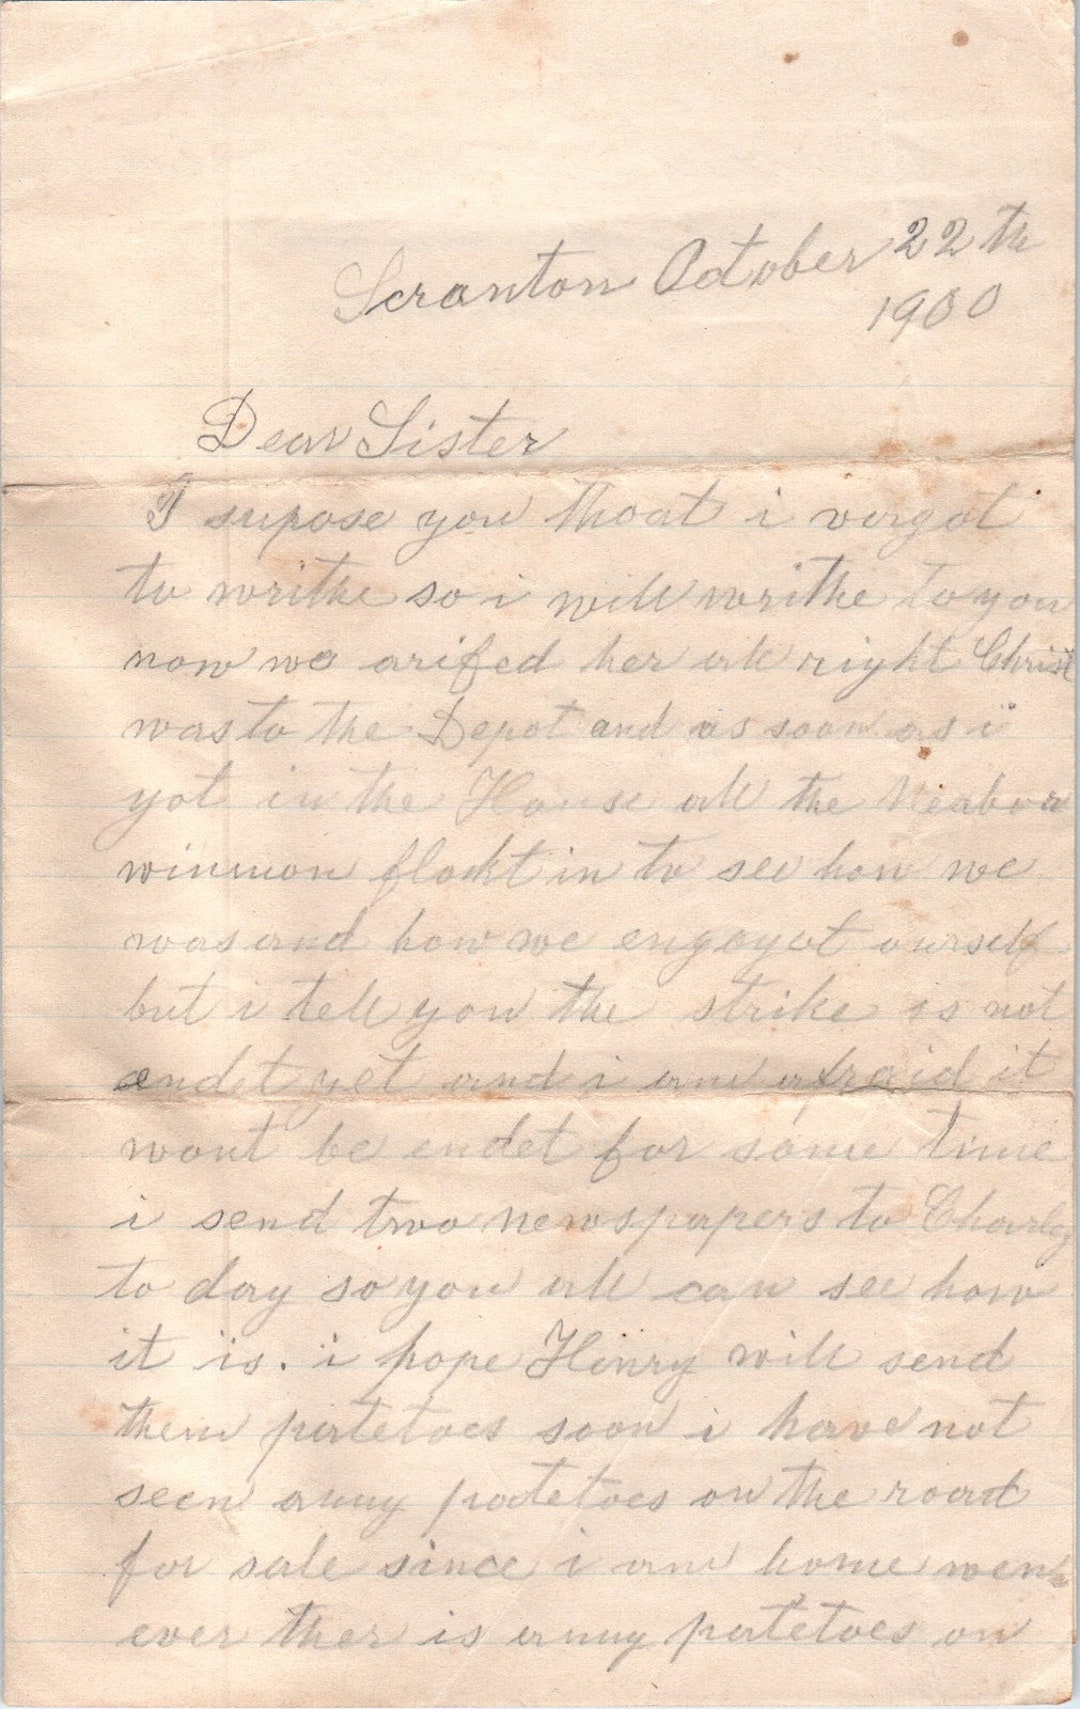 Scranton October 22th
1900
Dear Sister
I supose you thoat i vorgot
to writhe so i will writhe to you
now we arifed her all right Christ
was to the Depot and as soon as i
got in the House all the Neabor
wimmon flockt in to see how we
was and how we engoyet ourself
but i tell you the strike is not
endet yet and i am afraid it
wont be endet for some time
i send two newspapers to Charley
to day so you all can see how
it is. i hope Henry will send
them patetoes soon i have not
seen anny patetoes on the road
for sale since i am home wen
ever ther is anny patetoes on